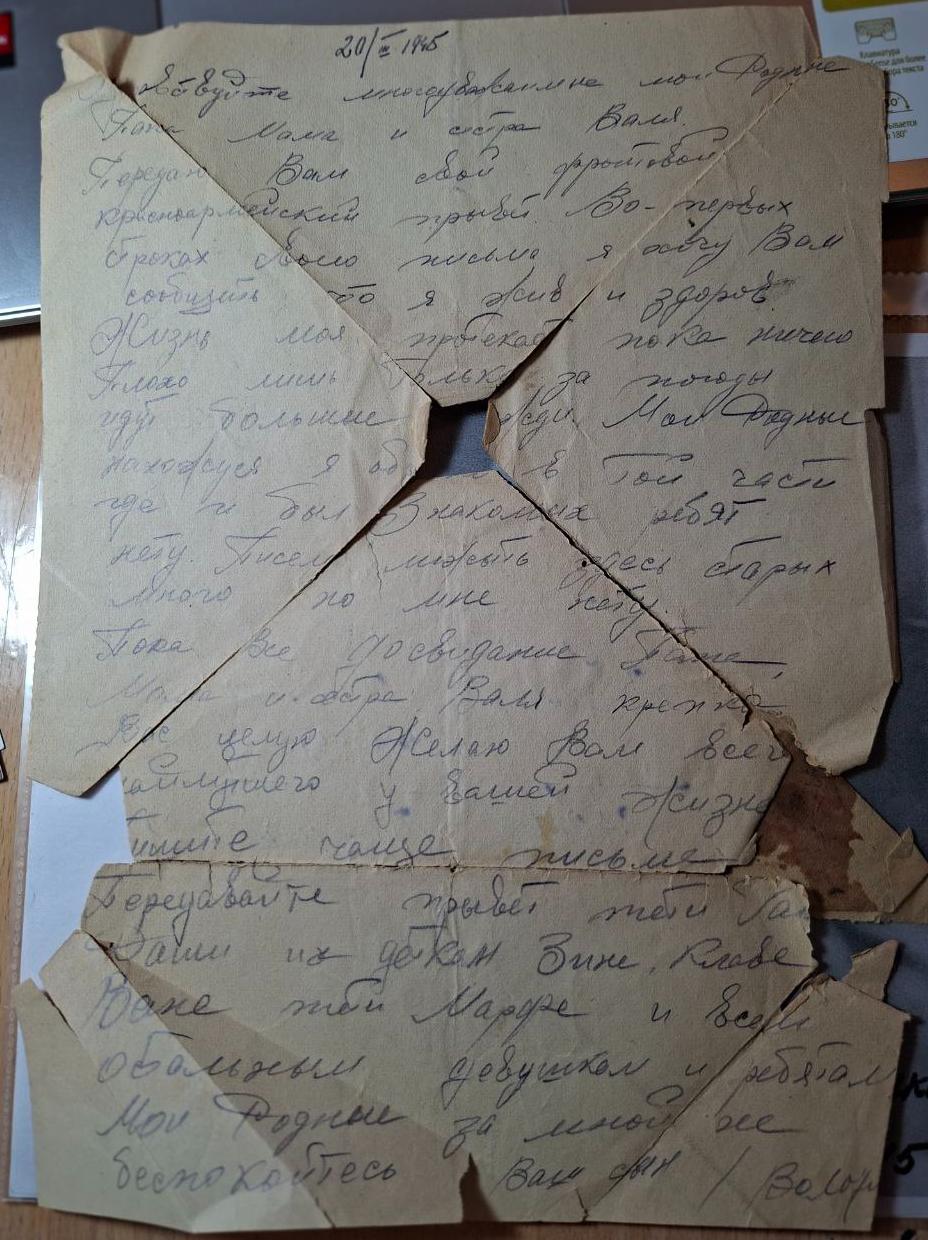 20/III 1945
вствуйте многоуважаимые мои Родные
Папа Мама и сестра Валя.
Передаю Вам свой фронтовой
красноармейский привет. Во-первых
строках своего письма я хочу Вам
сообщить что я жив и здоров
Жизнь моя протекает пока ничего
Плохо лишь только за погоды
идут большие жди. Мои Родные
нахожуся я в той части
где и был Знакомых ребят
нету. Писем лежыть здесь старых
много но мне нету.
Пока все Досвидание Папа,
Мама и сестра Валя крепко
Вас целую Желаю Вам всего
аилучшего у вашей жизне
пишите чаще письма
Передавайте привет тети
Даши их деткам Зине, Клаве
Ване тети Марфе и всем
остальным девушкам и ребятам
Мои Родные за мной не
беспокойтесь Ваш сын /
Клавиатура
180°